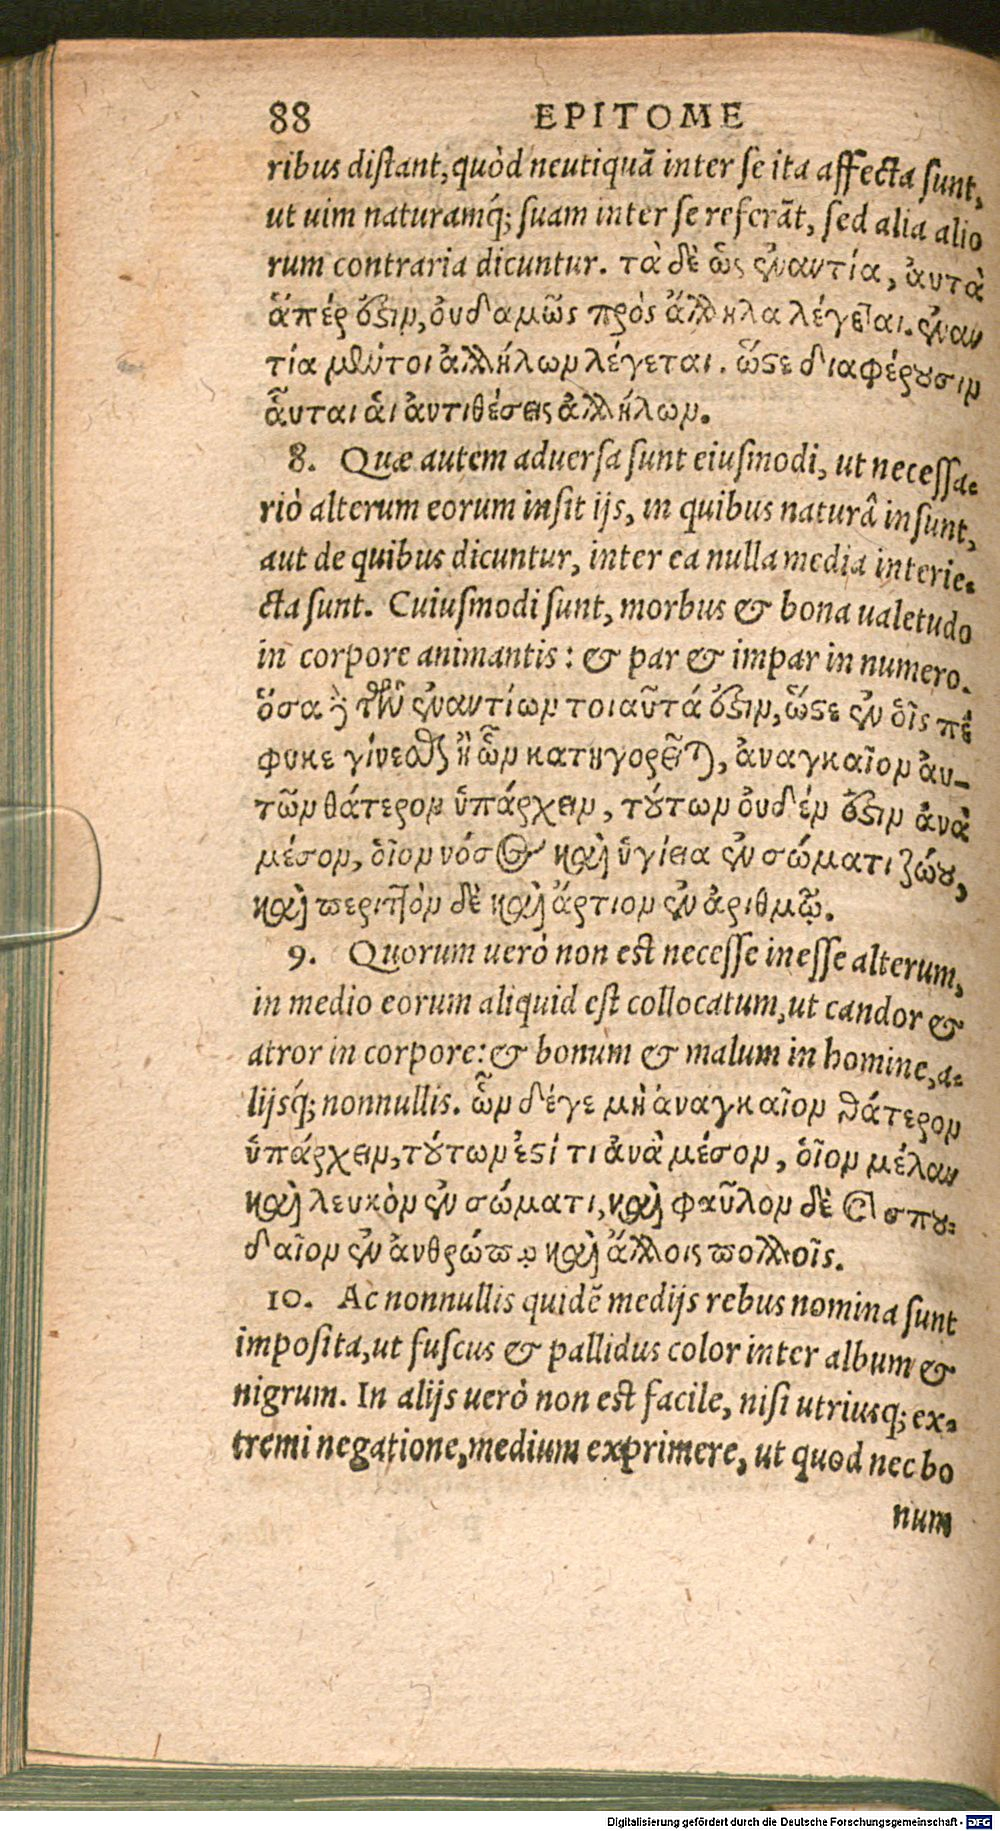 88 EPITOME
ribus distant, quòd neutiquã inter se ita affecta sunt,
ut uim naturamq́; suam inter se referãt, sed alia alio
rum contraria dicuntur. τὰ δὲ ὡς ἐναντία, ἀυτὰ
ἅπέρ ἐστιν, ὀυδαμῶς πρὸς ἄλληλα λέγεται. ἐναν
τία μέντοι ἀλλήλων λέγεται. ὥστε διαφέρουσιν
ἇυται ἁι ἀντιθέσεις ἀλλήλων.
8. Quæ autem aduersa sunt eiusmodi, ut necessa-
riò alterum eorum insit ijs, in quibus naturâ insunt,
aut de quibus dicuntur, inter ea nulla media interie-
cta sunt. Cuiusmodi sunt, morbus & bona ualetudo
in corpore animantis: & par & impar in numero.
ὅσα δὲ τῶν ἐναντίων τοιαῦτά ἐστιν, ὥστε ἐν ὁῖς πέ
φυκε γίνεσθαι ἢ ὧν κατηγορεῖται, ἀναγκαῖον ἀυ-
τῶν θάτερον ὑπάρχειν, τούτων ὀυδέν ἐστιν ἀνὰ
μέσον, ὁῖον νόσος καὶ ὑγίεια ἐν σώματι ζώου,
καὶ περιττὸν δὲ καὶ ἄρτιον ἐν ἀριθμῷ.
9. Quorum uerò non est necesse inesse alterum,
in medio eorum aliquid est collocatum, ut candor &
atror in corpore: & bonum & malum in homine, a-
lijsq́; nonnullis. ὧν δέγε μὴ ἀναγκαῖον θάτερον
ὑπάρχειν, τούτων ἐστί τι ἀνὰ μέσον, ὁῖον μέλαν
καὶ λευκὸν ἐν σώματι, καὶ φαῦλον δὲ καὶ σπου-
δαῖον ἐν ἀνθρώπῳ καὶ ἄλλοις πολλοῖς.
10. Ac nonnullis quidẽ medijs rebus nomina sunt
imposita, ut fuscus & pallidus color inter album &
nigrum. In alijs uerò non est facile, nisi utriusq; ex-
tremi negatione, medium exprimere, ut quod nec bo
num
Digitalisierung gefördert durch die Deutsche Forschungsgemeinschaft - DFG